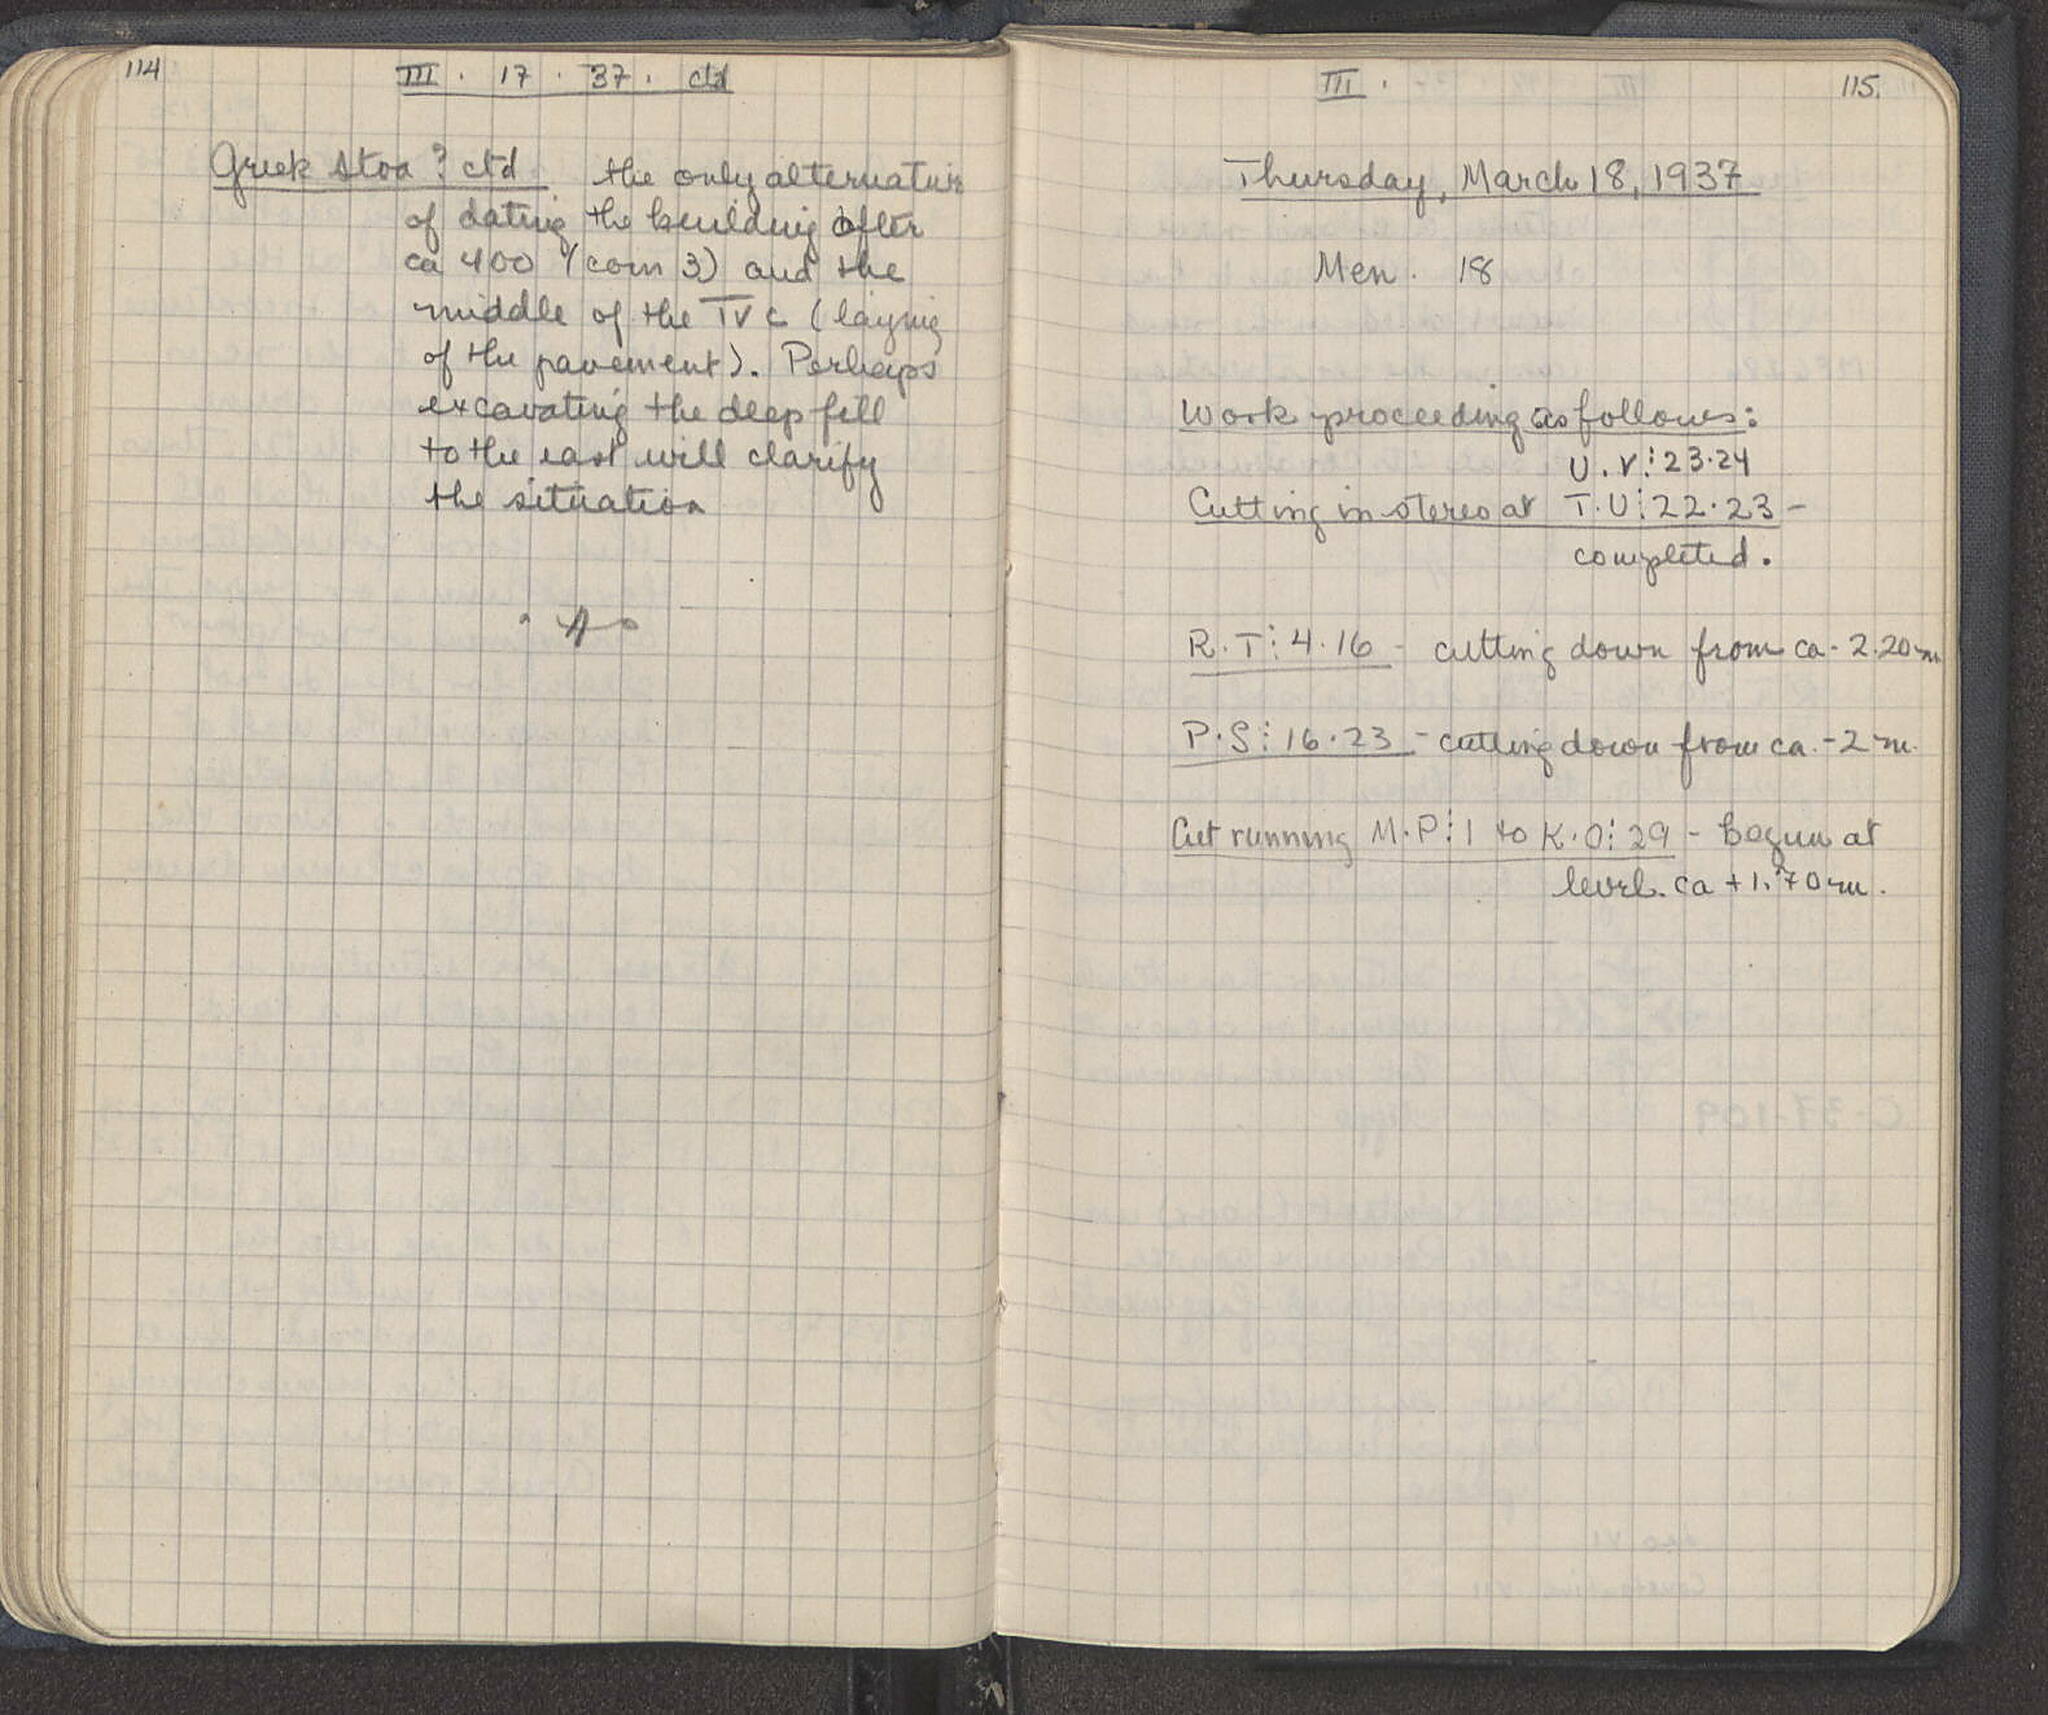 114
III . 17 . 37 . ctd
Greek Stoa ? ctd the only alternative
of dating the building after
ca 400 (coin 3) and the
middle of the IV c (laying
of the pavement). Perhaps
excavating the deep fill
to the east will clarify
the situation
III .
115.
Thursday, March 18, 1937
Men. 18
Work proceeding as follows:
U.V:23.24
Cutting in stereo at T.U:22.23 -
completed.
R.T:4.16 - cutting down from ca - 2.20 m
P.S:16.23 - cutting down from ca. - 2 m.
Cut running M.P:1 to K.O:29 - Begun at
level. ca + 1.70 m.